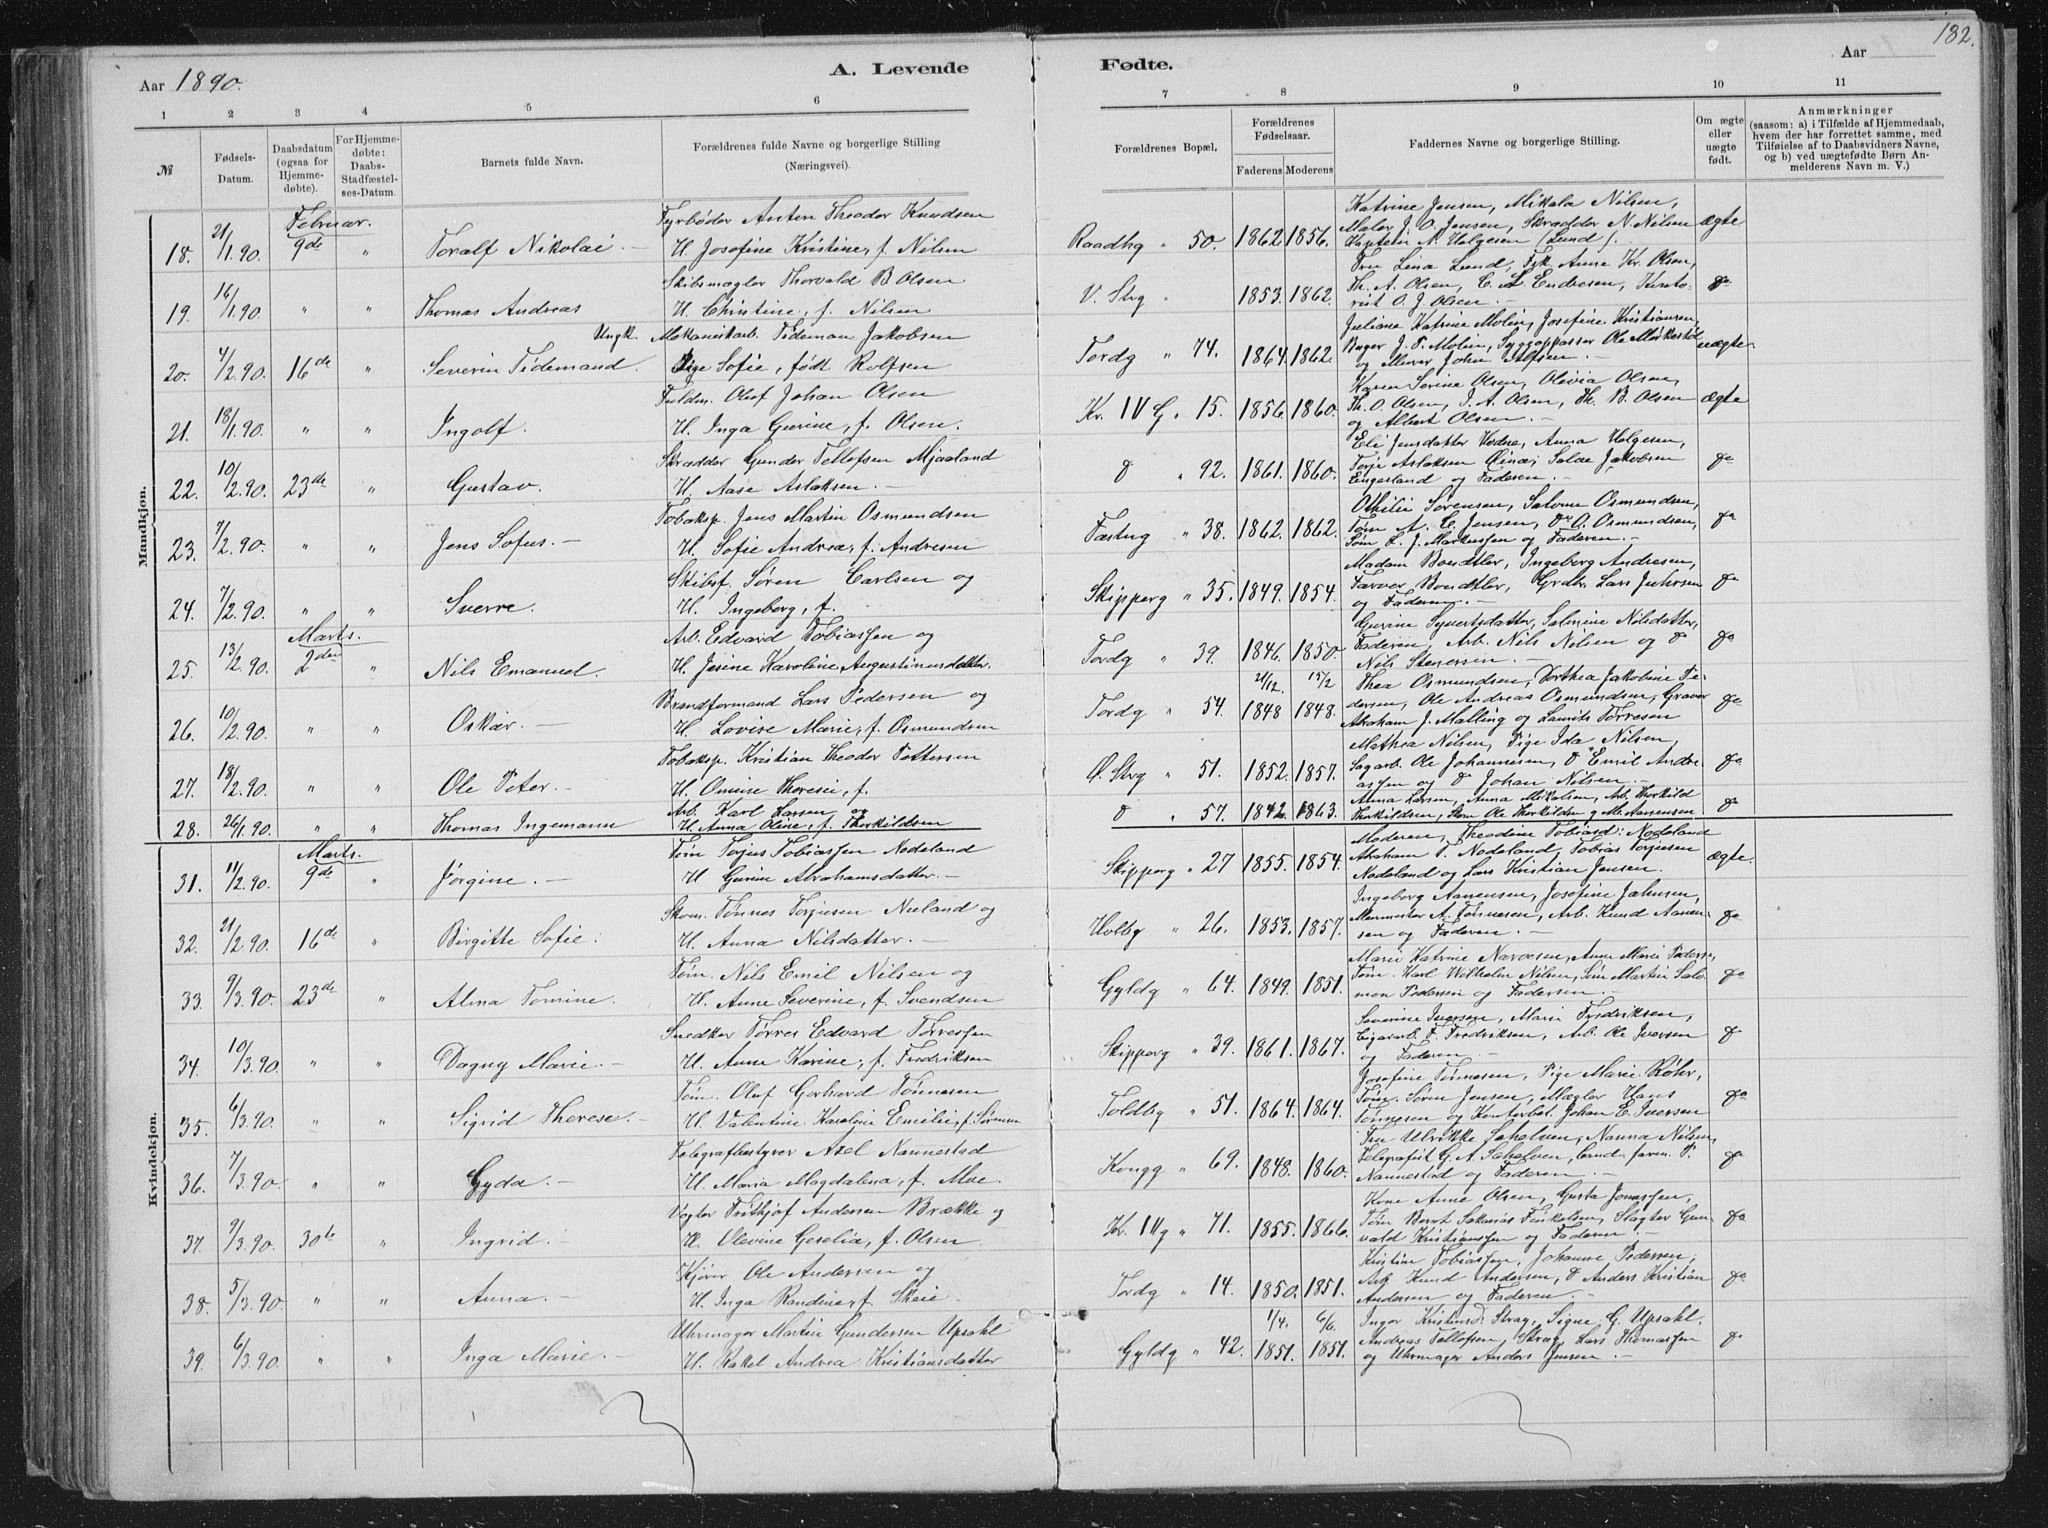 182.
Aar 1890.
A. Levende Fødte.
Aar
1 2 3 4 5 6 7 8 9 10 11
№
Fødsels-Datum.
Daabsdatum (ogsaa for Hjemmedøbte).
For Hjemmedøbte: Daabs-Stadfæstelses-Datum.
Barnets fulde Navn.
Forældrenes fulde Navne og borgerlige Stilling (Næringsvei).
Forældrenes Bopæl.
Forældrenes Fødselsaar.
Faderens Moderens
Faddernes Navne og borgerlige Stilling.
Om ægte eller uægte født.
Anmærkninger
(saasom: a) i Tilfælde af Hjemmedaab, hvem der har forrettet samme, med Tilføielse af to Daabsvidners Navne, og b) ved uægtefødte Børn Anmelderens Navn m. V.)
Mandkjøn.
Februar.
Fyrbøder Anton Theodor Knudsen
Katrine Jensen, Mikala Nilsen,
Maler J. O. Jensen, Skrædder N. Nilsen
18. 21/1.90. 9de " Toralf Nikolai.— H. Josefine Kristine, f. Nilsen Raadhg " 50. 1862 1856. Kaptein N. Helgesen (Lund). ægte
Skibsmægler Thorvald B. Olsen
Fru Lina Lund, Frk. Anne Kr. Olsen,
Th. A. Olsen, C. L. Endresen,
19. 16/1.90 " " Thomas Andreas H. Christine, f. Nilsen V. Strg " 1853. 1862. O. J. Olsen.— do
Ungk. Mekanikarb. Tideman Jakobsen
Juliane Katrine Molin, Josefine Kristiansen,
Bager J. P. Molin, Ole Mørkestøl
20. 4/2.90. 16de " Severin Tidemand. Pige Sofie, født Rolfsen Tordg " 74. 1864. 1862. og Murer John Alfsen.— uægte
Fuldm. Oluf Johan Olsen
Karen Serine Olsen, Olivia Olsen,
Th. O. Olsen, J. A. Olsen, Th. B. Olsen
21. 18/1.90. " " Ingolf. H. Inga Gurine, f. Olsen. Kr. IV G. " 15. 1856. 1860. og Albert Olsen.— ægte
Skrædder Gunder Tellefsen Mjaaland
Eli Jensdatter, Anna Helgesen,
Terje Aslaksen, Salve Jakobsen
22. 10/2.90. 23de " Gustav. H. Aase Aslaksen.— do " 92. 1861. 1860. Engesland og Faderen.— do
Tobaksp. Jens Martin Osmundsen
Othilie Sørensen, Salome Osmundsen,
Tøm A. E. Jensen, do O. Osmundsen,
23. 7/2.90. " " Jens Sofus.— H. Sofie Andrea, f. Andresen Fæstng " 38. 1862. 1862. Søm L. J. Markussen og Faderen.— do
Skibsf. Søren Carlsen og
Madam Bondtler, Ingeborg Andresen,
Farver Bondtler, Lars Juhrsen
24. 7/2.90. " " Sverre. H. Ingeborg, f. Skipperg " 35. 1849. 1854. og Faderen.— do
Marts.
Arb. Edvard Tobiassen og
Gurine Syvertsdatter, Salmine Nilsdatter,
Faderen, Arb. Nils Nilsen og do
25. 13/2.90. 2den " Nils Emanuel. H. Jesine Karoline Augustinusdatter. Tordg " 39. 1846. 1850. Nils Stenersen.— do
Brandformand Lars Pedersen og
21/12. 15/2 Thea Osmundsen, Dorthea Jakobine Pe-
dersen, Ole Andreas Osmundsen, Graver
26. 10/2.90. " " Oskar.— H. Lovise Marie, f. Osmundsen Tordg " 54. 1848 1848. Abraham J. Malling og Laurits Tørresen do
Tobaksp. Kristian Theodor Pettersen
Mathea Nilsen, Pige Ida Nilsen,
Sagarb. Ole Johannesen, do Emil Andre-
27. 18/2.90. " " Ole Peter.— H. Omine Theresie, f. Ø. Strg " 51. 1852. 1857. assen og do Johan Nilsen.— do
Arb. Karl Larsen og
Anna Larsen, Anna Mikalsen, Arb. Thorkild
28. 26/1.90. " " Thomas Ingemann H. Anna Oline, f. Thorkildsen do " 57. 1842. 1863. Thorkildsen, Skom Ole Thorkildsen og M. Aanensen do
Kvindekjøn.
Marts.
Tøm Torjus Tobiassen Nodeland
Moderen, Theodine Tobiasd. Nodeland
Abraham T. Nodeland, Tobias Torjusen
31. 11/2.90. 9de " Jørgine.— H. Gurine Abrahamsdatter.— Skipperg " 27 1855. 1854. Nodeland og Lars Kristian Jensen. ægte.
Skom. Tønnes Torjusen Nuland og
Ingeborg Aanensen, Josefine Jahnsen,
Murmester A. Tønnesen, Arb. Knud Aanen-
32. 21/2.90. 16de " Birgitte Sofie. H. Anna Nilsdatter.— Holbg " 26. 1853. 1857. sen og Faderen.— do
Tøm. Nils Emil Nilsen og
Marie Katrine Narvesen, Anne Marie Peders.,
Tøm. Karl Wilhelm Nilsen, Søm Martin Salo-
33. 9/3.90. 23de " Alma Tomine. H. Anne Severine, f. Svendsen Gyldg " 64. 1849. 1851. mon Pedersen og Faderen.— do
Snedker Tørres Edvard Tørressen
Severine Iversen, Marie Fredriksen,
Cigararb. F. Fredriksen, Arb. Ole Iversen
34. 10/3.90. " " Dagny Marie.— H. Anne Karine, f. Fredriksen Skipperg " 39. 1861. 1867. og Faderen.— do
Tøm. Oluf Gerhard Tønnesen
Josefine Tønnesen, Pige Marie Røhr,
Tøm. Søren Jensen, Mægler Hans
35. 6/3.90. " " Sigrid Therese.— H. Valentine Karoline Emilie, f. Sørensen Toldbg " 51. 1864. 1864. Tønnesen og Kontorbet. Johan E. Iversen do
Telegrafbestyrer Axel Nannestad
Fru Ulrikke Schelven, Nanna Nilsen,
Telegrafist G. A. Schelven,
36. 7/3.90. " " Gyda.— H. Maria Magdalena, f. Moe. Kongg " 69. 1848. 1860. Nannestad og Faderen.— do
Vogter Frithjof Andersen Brække og
Kone Anne Olsen, Gusta Jonassen,
Tøm Bernt Sakarias Finkelsen, Slagter Gun-
37. 9/3.90. 30te " Ingrid.— H. Olevine Geselia, f. Olsen. Kr. IVg " 71. 1855. 1866. vald Kristianssen og Faderen.— do
Kjører Ole Andersen og
Kristine Tobiassen, Johanne Pedersen,
Arb. Knud Andersen, do Anders Kristian
38. 5/3.90. " " Anna.— H. Inga Randine, f. Skeie.— Tordg " 14. 1850. 1851. Andersen og Faderen.— do
Uhrmager Martin Gundersen Upsahl
1/4. 6/6. Inger Kristensd. Strag, Signe G. Upsahl,
Andreas Tellefsen, Strag, Lars Thomassen
39. 6/3.90. " " Inga Marie.— H. Rakel Andrea Kristiansdatter Gyldg " 42. 1851. 1851. og Uhrmager Anders Jensen.— do